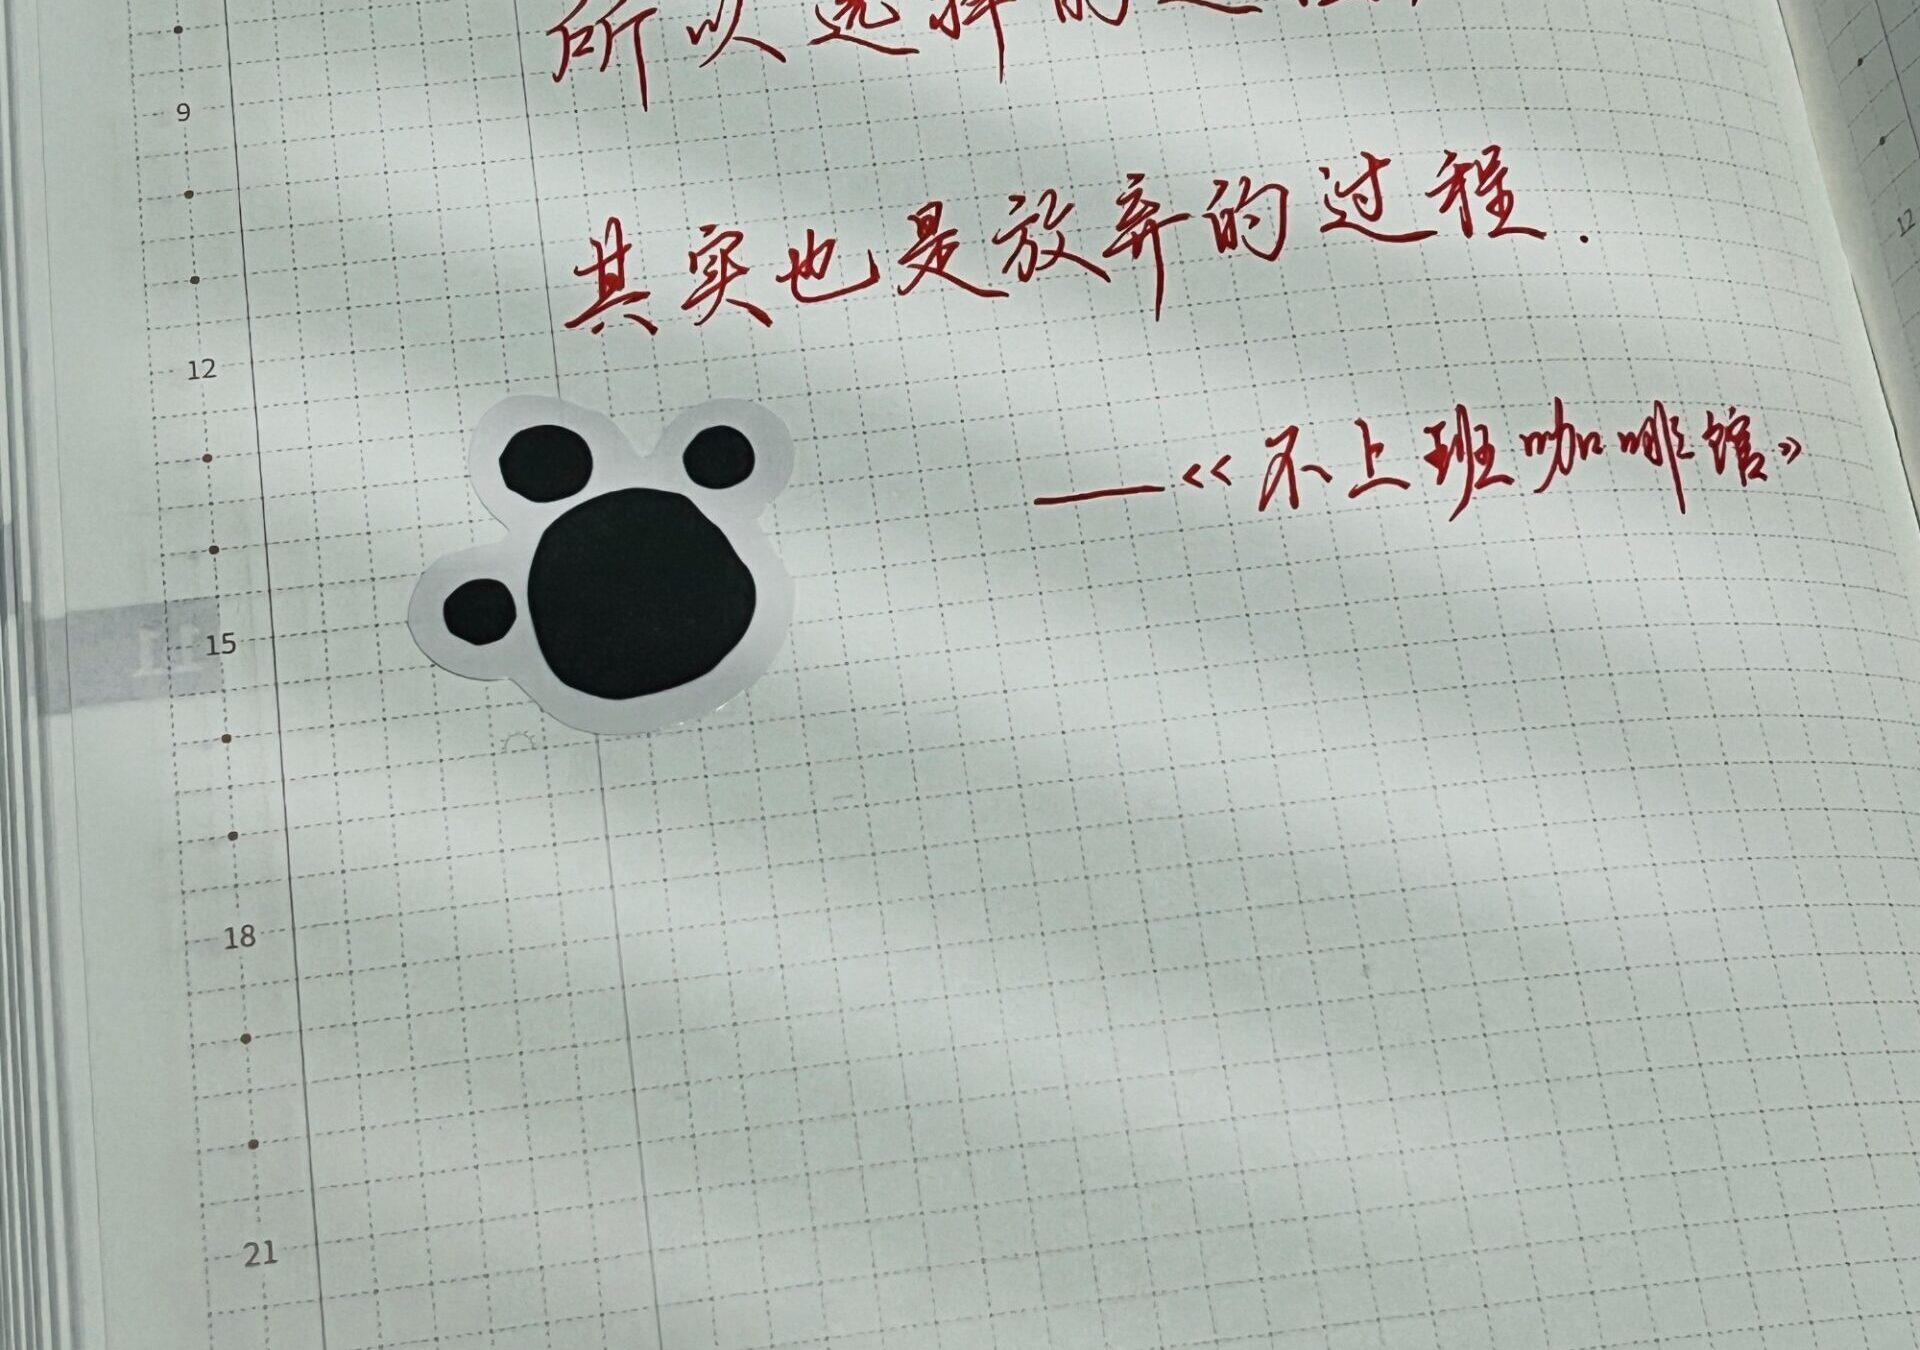 所以选择的过程，
9
其实也是放弃的过程.
12
12
——<<不上班咖啡馆>>
15
18
21